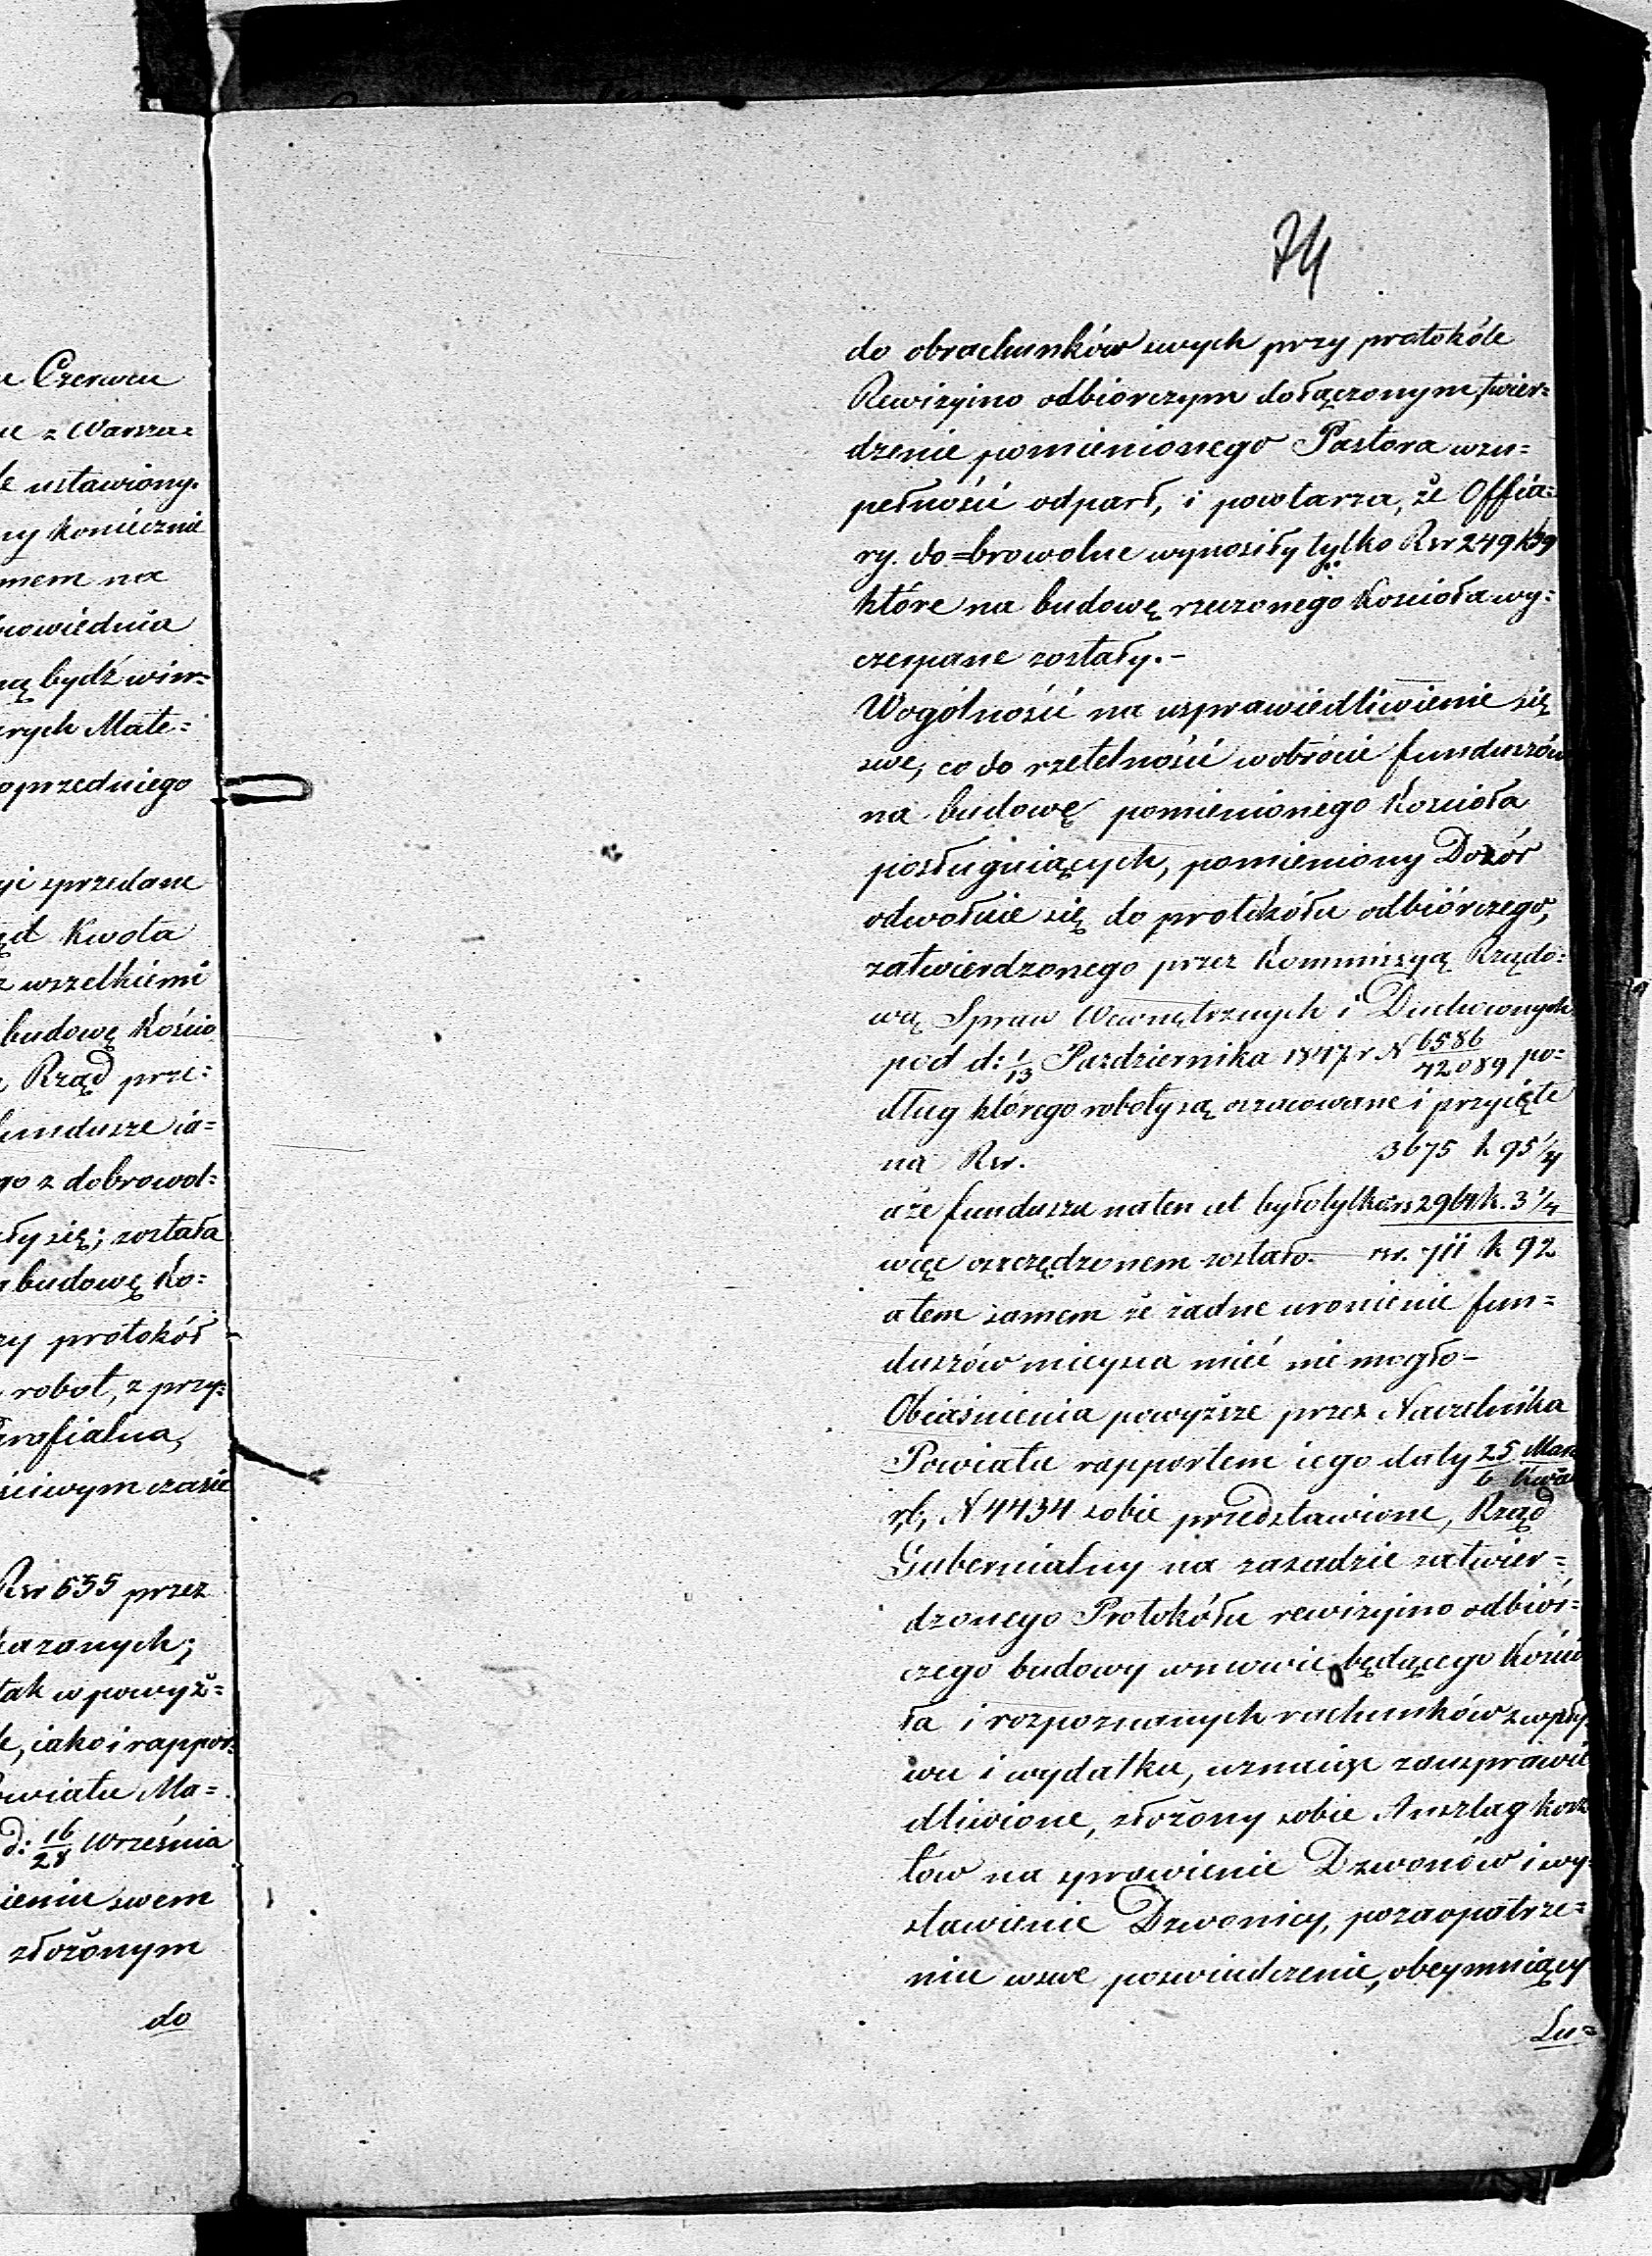 u Czerwcu
ue z Warsza=
le ustawiony.
ny koniecznie
mem na
powiednia
ną bydź wier=
arych Mate=
oprzedniego
yi sprzedane
ąd Kwota
z wszelkiemi
budowę Kościo
a Rząd prze=
fundusze ia=
go z dobrowol=
ały się; została
a budowę Ko=
zy protokół
robot, z przy=
Parafialna,
ściwym czasie
Rsr 655 przez
kazanych;
tak w powyż=
le, iako i rappor=
owiatu Ma=
d: 16/28 Września
ieniu swem
złożonym
do
74
do obrachunków swych przy protokóle
Rewizyino odbiorczym dołączonym, twier=
dzenie pomienionego Pastora wzu=
pełności odparł, i powtarza, że Offia=
ry do=browolne wynosiły tylko Rsr 249 k 39
które na budowę rzeczonego Kościoła wy=
czerpane zostały.-
Wogólności na usprawiedliwienie się
swe, co do rzetelności w obrócie funduszów
na budowę pomienionego Kościoła
posługuiących, pomieniony Dozór
odwołuie się do protokółu odbiórczego,
zatwierdzonego przez Kommissyą Rządo=
wą Spraw Wewnętrznych i Duchownych
pod d: 1/13 Pazdziernika 1847 r N 6586/42089 po=
dług którego roboty są oszacowane i przyięte
na Rsr. 3675 k 95 1/4
a że funduszu na ten cel było tylko rs 2964 k. 3 1/4
więc oszczędzonem zostało.— rsr. 711 k 92
a tem samem że żadne uronienie fun=
duszów mieysca mieć nie mogło-
Obiaśnienia powyższe przez Naczelnika
Powiatu rapportem iego daty 25 Mar/6 Kwie
r,b, N 4434 sobie przedstawione, Rząd
Gubernialny na zasadzie zatwier=
dzonego Protokółu rewizyino odbiór=
czego budowy w mowie będącego Kościo
ła i rozpoznanych rachunków z wpły
wu i wydatku, uznaiąc za usprawie
dliwione, złożony sobie Anszlag kosz
tów na sprawienie Dzwonów i wy=
stawienie Dzwonicy, po zaopatrze=
niu w swe poswiadczenie, obeymuiący
Lu=